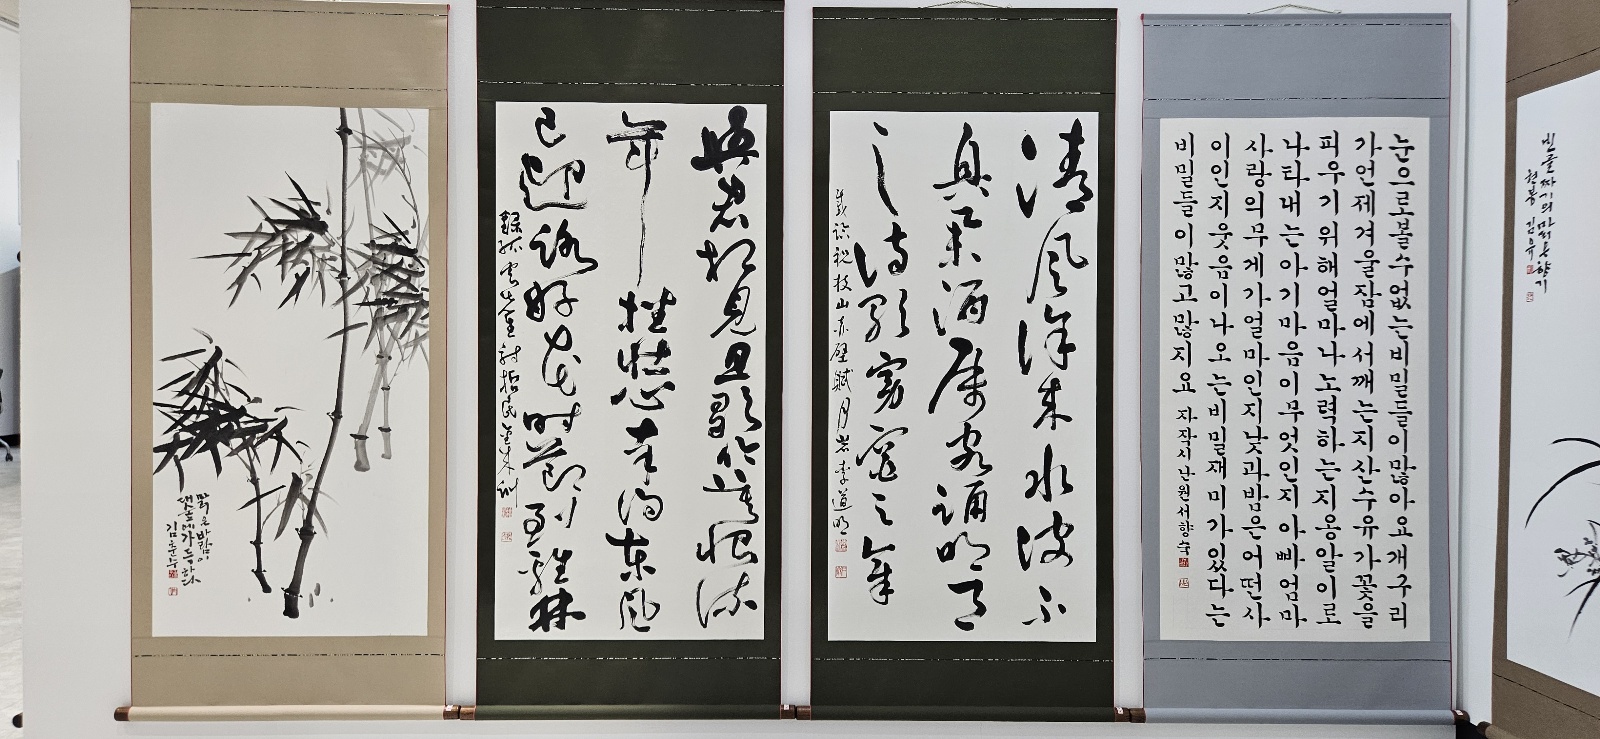 맑은바람이
대숲에가득하다
與君相見且歌吟莫恨流
年挫壯心幸得東風
已迎路好花時節到雞林
錄孤雲先生詩
清風徐來水波不
興舉酒屬客誦明月
之詩歌窈窕之章
祝枝山赤壁賦 月岩 李道明
눈으로볼수없는비밀들이많아요개구리
가언제겨울잠에서깨는지산수유가꽃을
피우기위해얼마나노력하는지옹알이로
나타내는아기마음이무엇인지아빠엄마
사랑의무게가얼마인지낮과밤은어떤사
이인지웃음이나오는비밀재미가있다는
비밀들이많고많지요 자작시 난원 서향숙
빈골짜기의맑은향기